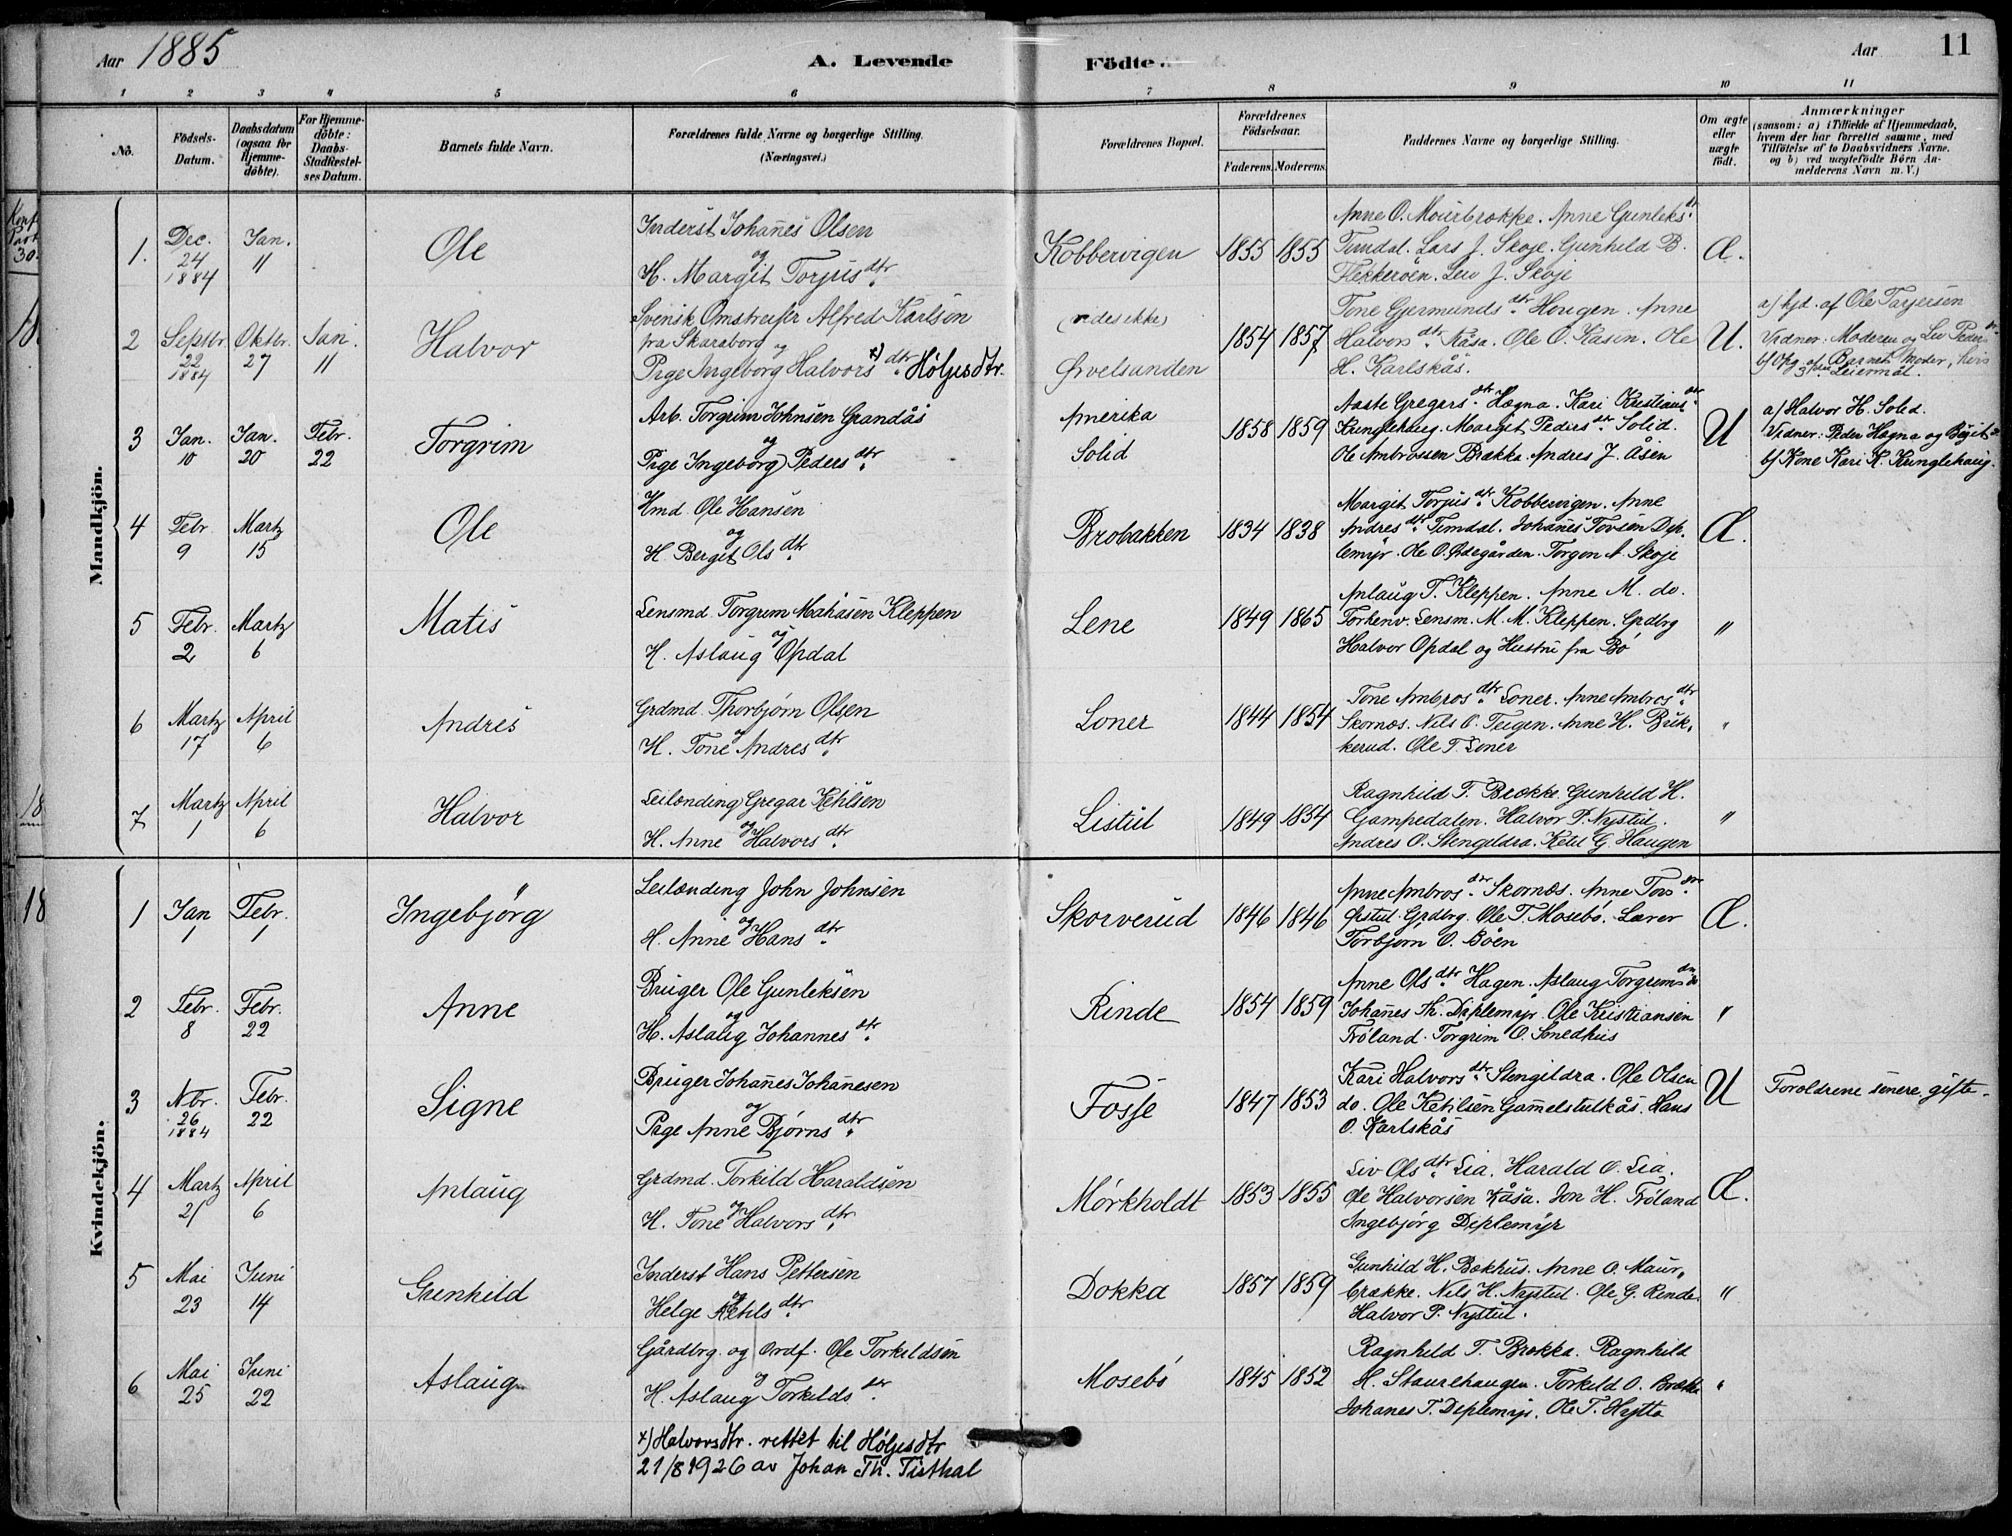 Aar 1885
A. Levende Födte.
Aar
11
1 2 3 4 5 6 7 8 9 10 11
No.
Födsels-Datum.
Daabsdatum (ogsaa for Hjemme-döbte).
For Hjemme-döbte: Daabs-Stadfæstel-ses Datum.
Barnets fulde Navn.
Forældrenes fulde Navne og borgerlige Stilling.
(Næringsvei.)
Forældrenes Bopæl.
Forældrenes Födselsaar.
Faderens. Moderens.
Faddernes Navne og borgerlige Stilling.
Om ægte eller uægte födt.
Anmærkninger
(saasom: a) i Tilfælde af Hjemmedaab,
hvem der har forrettet samme, med
Tilföielse af to Daabsvidners Navne.
og b) ved uægtefödte Börn An-
melderens Navn m. V.)
Mandkjön.
1. Dec. 24 1884
Jan. 11
Ole
Inderst Johanes Olsen
og
H. Margit Torjusdtr.
Kobbervigen
1855 1855
Anne O. Mourbrække. Anne Gunleksdr.
Timdal. Lars J. Skoje. Gunhild B.
Flekkerøen. Leiv J. Skoje
Æ.
2 Septbr. 22 1884
Oktbr. 27
Jan. 11
Halvor
Svensk Omstreifer Alfred Karlson
fra Skaraborg og
Pige Ingeborg Halvors x) dtr. Høljesdtr.
(vides ikke)
Ørvelsunden
1854 1857
Tone Gjermundsdtr. Hougen. Anne
Halvorsdtr. Kåsa. Ole O. Kåsen. Ole
H. Karlskås.
U.
a) hjd. af Ole Tarjersen
Vidner. Moderen og Liv Pedersdtr.
b) Opg. af Barnets Moder, hvis
3die Leiermål.
3 Jan. 10
Jan. 20
Febr. 22
Torgrim
Arb. Torgrim Johnsen Grandås
og
Pige Ingeborg Pedersdtr.
Amerika
Solid
1858 1859
Aaste Gregarsdtr. Hægna. Kari Kristiansdtr.
Kringlehaug. Margit Pedersdtr. Solid.
Ole Ambrossen Brække. Andres J. Åsen
U
a) Halvor H. Solid.
Vidner. Peder Hægna og Birgit
b) Kone Kari K. Kringlehaug.
4 Febr 9
Martz 15
Ole
Hmd. Ole Hansen
og
H. Bergit Olsdtr.
Brobakken
1834 1838
Margit Torjusdtr. Kobbervigen. Anne
Andresdtr. Timdal. Johanes Tovsen Dip-
lemyr. Ole O. Ødegården. Torgon A. Skoje
Æ.
5 Febr. 2
Martz 6
Matis
Lensmd. Torgrim Matiasen Kleppen
og
H. Aslaug Opdal
Lene
1849 1865
Anlaug T. Kleppen. Anne M. do.
Forhenv. Lensm. M. M. Kleppen. Grdbrg
Halvor Opdal og Hustru fra Bø
"
6 Martz 17
April 6
Andres
Grdmd. Thorbjørn Olsen
og
H. Tone Andresdtr.
Loner
1844 1854
Tone Ambrosdtr. Loner. Anne Ambrosdtr.
Skornæs. Nils O. Teigen. Anne H. Buk-
kerud. Ole T. Loner
"
7 Martz 1
April 6
Halvor
Leilænding Gregar Ketilsen
og
H. Anne Halvorsdtr.
Listul
1849 1854
Ragnhild T. Brække. Gunhild H.
Gampedalen. Halvor P. Nystul.
Andres O. Stengildra. Ketil G. Haugen
"
Kvindekjön.
1 Jan 1
Febr. 1
Ingebjörg
Leilænding John Johnsen
og
H. Anne Hansdtr.
Skorverud
1846 1846
Anne Ambrosdtr. Skornæs. Anne Torsdtr.
Ørstul. Grdbrg. Ole T. Mosebø. Lærer
Torbjørn O. Bøen
Æ.
2 Febr. 8
Febr. 22
Anne
Bruger Ole Gunleksen
og
H. Aslaug Johannesdtr.
Rinde
1854 1859
Anne Olsdtr. Hagen. Aslaug Torgrimsdtr. do
Johanes Th. Diplemyr. Ole Kristiansen
Frøland. Torgrim O. Smedhus
"
3 Nbr. 26 1884
Febr. 22
Signe
Bruger Johanes Johanesen
og
Pige Anne Bjørnsdtr.
Fosse
1847 1853
Kari Halvorsdtr. Stengildra. Ole Olsen
do. Ole Ketilsen Gamelstulkås. Hans
O. Karlskås
U
Foroldrene senere gifte.
4 Martz 21
April 6
Anlaug
Grdmd. Torkild Haraldsen
og
H. Tone Halvorsdtr.
Mørkholdt
1853 1855
Liv Olsdtr. Lia. Harald O. Lia.
Ole Halvorsen Kåsa. Jon H. Frøland
Ingebjørg Diplemyr
Æ.
5 Mai 23
Juni 14
Gunhild
Inderst Hans Pettersen
og
Helge Ketilsdtr.
Dokka
1857 1859
Gunhild H. Bækhus. Anne O. Maur-
brække. Nils H. Nystul. Ole G. Rinde.
Halvor P. Nystul.
"
6 Mai 25
Juni 22
Aslaug
Gårdbrg. og Ordf. Ole Torkildsen
og
H. Aslaug Torkildsdr.
Mosebø
1845 1852
Ragnhild T. Brække. Ragnhild
H. Staurehaugen. Torkild O. Brække
Johanes T. Diplemyr. Ole T. Hytta
"
x) Halvorsdtr. rettet til Høljesdtr
21/8 1926 av Johan Th. Tisthal